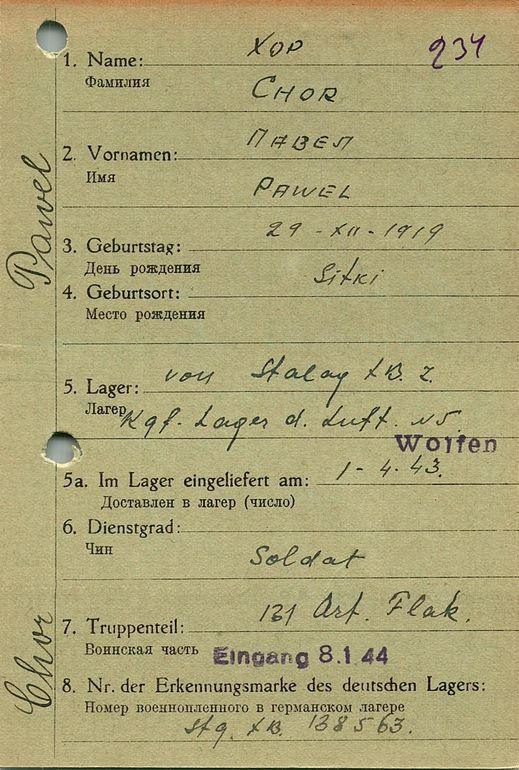 234
1. Name: Хор
Фамилия Chor
2. Vornamen: Павел
Имя Pawel
29-XII-1919
3. Geburtstag:
День рождения Sitki
4. Geburtsort:
Место рождения
5. Lager: von Stalag XB. z.
Лагер Kgf. Lager d. Luft. N5.
Wolfen
5a. Im Lager eingeliefert am: 1-4-43.
Доставлен в лагер (число)
6. Dienstgrad:
Чин Soldat
7. Truppenteil: 131 Art. Flak.
Воинская часть Eingang 8.1.44
8. Nr. der Erkennungsmarke des deutschen Lagers:
Номер военнопленного в германском лагере
Stg. XB. 138563.
Pawel
Chor